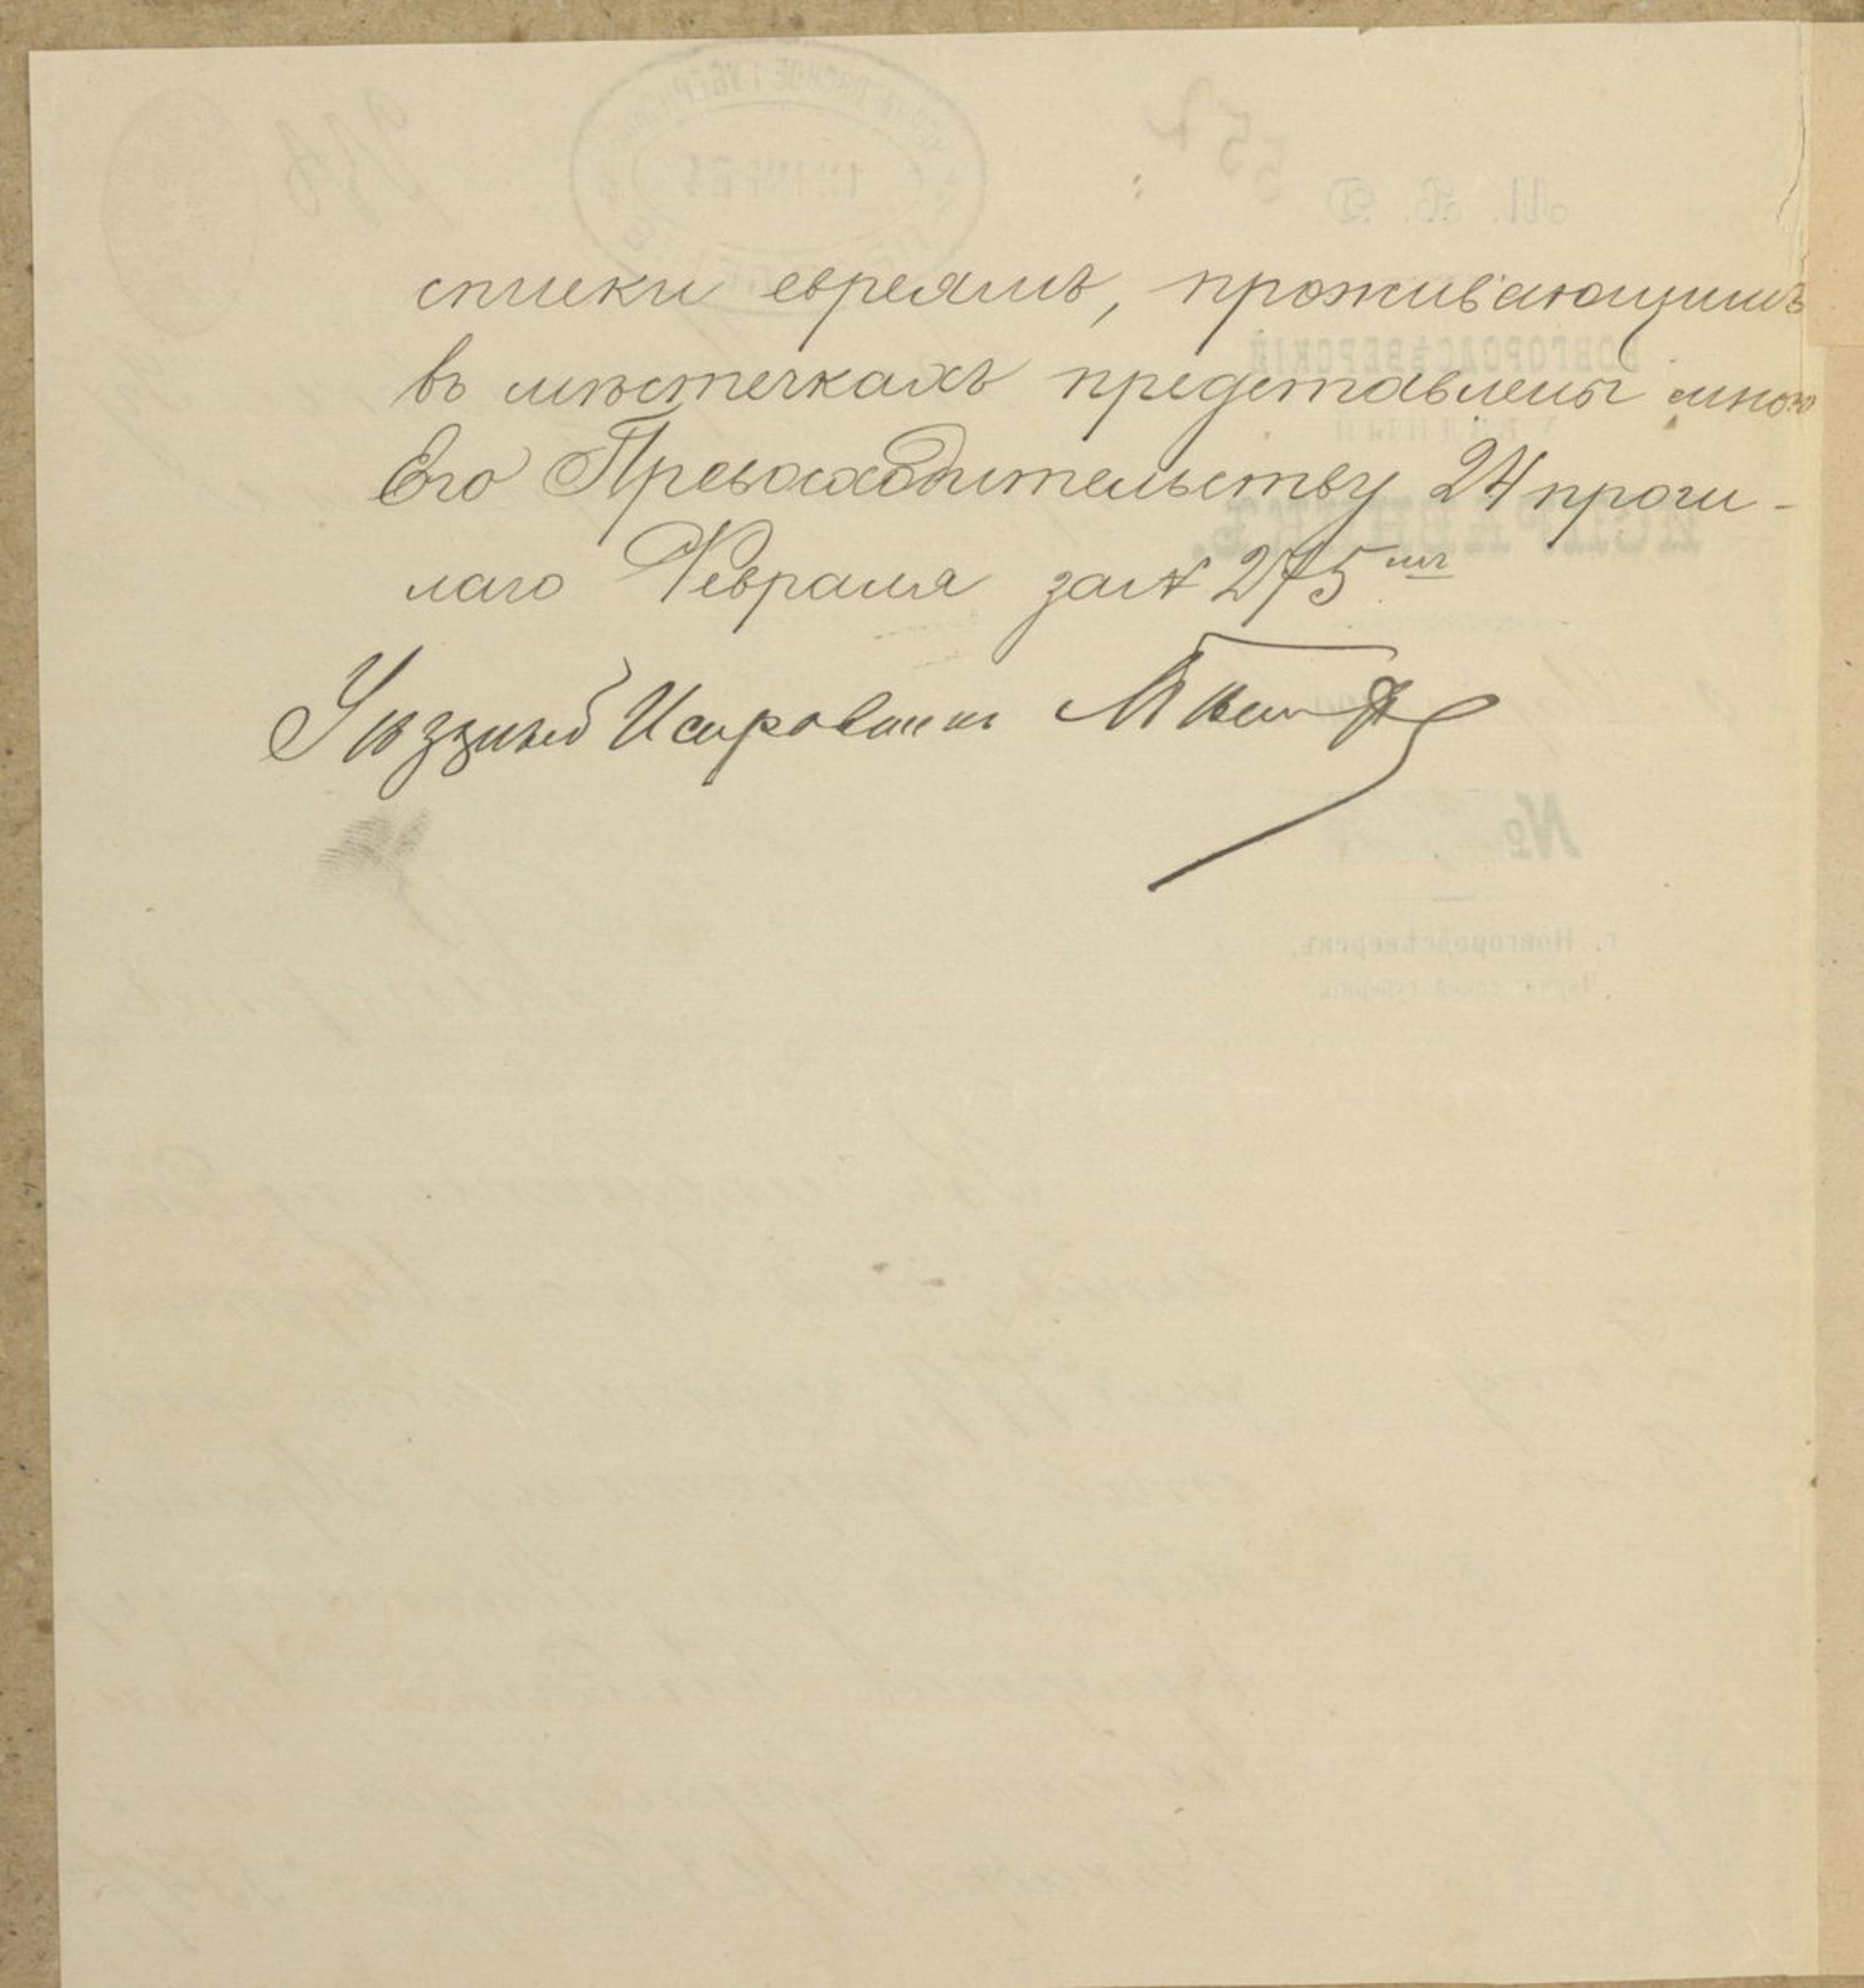 списки евреямъ, проживающимъ
въ мѣстечкахъ представлены мною
Его Превосходительству 24 прош-
лаго Февраля за № 275
Уѣздный Исправникъ